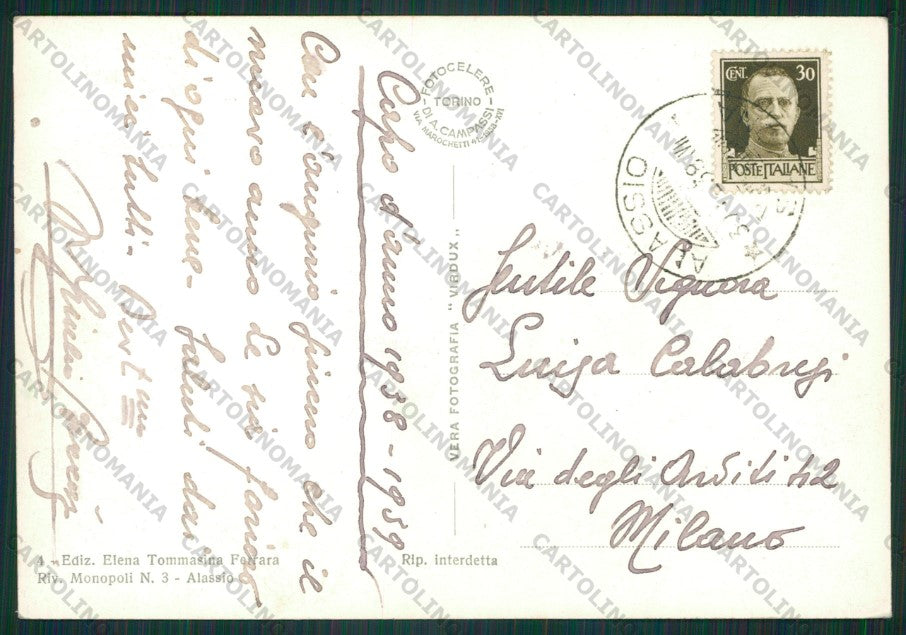 Capo d'anno 1938-1939
Con l'augurio fermo che il
nuovo anno Le sia foriero
di ogni bene - saluti dai
miei tutti -
FOTOCELERE
TORINO
DI A. CAMPASSI
VIA MAROCHETTI 41
VERA FOTOGRAFIA "VIRDUX"
CENT. 30
POSTE ITALIANE
ALASSIO
Gentile Signora
Luisa Calabresi
Via degli Arditi 42
Milano
4 - Ediz. Elena Tommasina Ferrara
Riv. Monopoli N. 3 - Alassio
Rip. interdetta
CARTOLINOMANIA